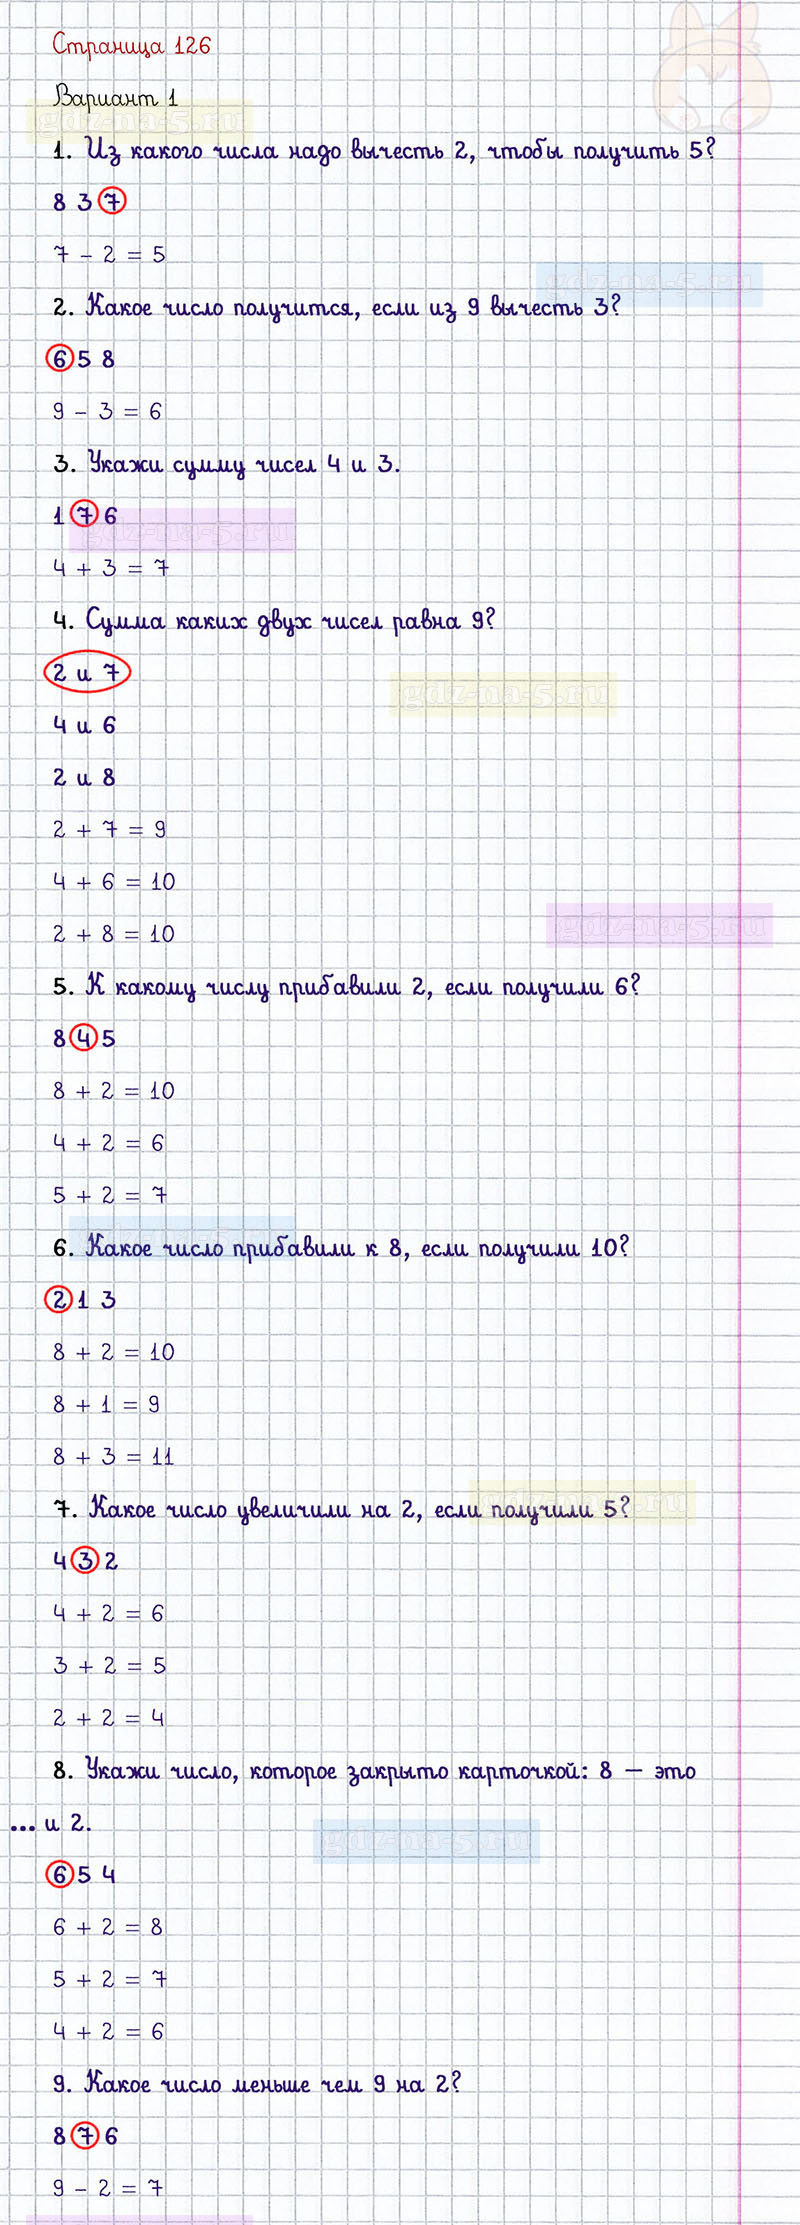 Страница 126
Вариант 1
gdz-na-5.ru
1. Из какого числа надо вычесть 2, чтобы получить 5?
8 3 7
7 - 2 = 5
gdz-na-5.ru
2. Какое число получится, если из 9 вычесть 3?
6 5 8
9 - 3 = 6
3. Укажи сумму чисел 4 и 3.
1 7 6
gdz-na-5.ru
4 + 3 = 7
4. Сумма каких двух чисел равна 9?
2 и 7
gdz-na-5.ru
4 и 6
2 и 8
2 + 7 = 9
4 + 6 = 10
gdz-na-5.ru
2 + 8 = 10
5. К какому числу прибавили 2, если получили 6?
8 4 5
8 + 2 = 10
4 + 2 = 6
5 + 2 = 7
gdz-na-5.ru
6. Какое число прибавили к 8, если получили 10?
2 1 3
8 + 2 = 10
8 + 1 = 9
8 + 3 = 11
gdz-na-5.ru
7. Какое число увеличили на 2, если получили 5?
4 3 2
4 + 2 = 6
3 + 2 = 5
2 + 2 = 4
8. Укажи число, которое закрыто карточкой: 8 – это
... и 2.
gdz-na-5.ru
6 5 4
6 + 2 = 8
5 + 2 = 7
4 + 2 = 6
9. Какое число меньше чем 9 на 2?
8 7 6
9 - 2 = 7